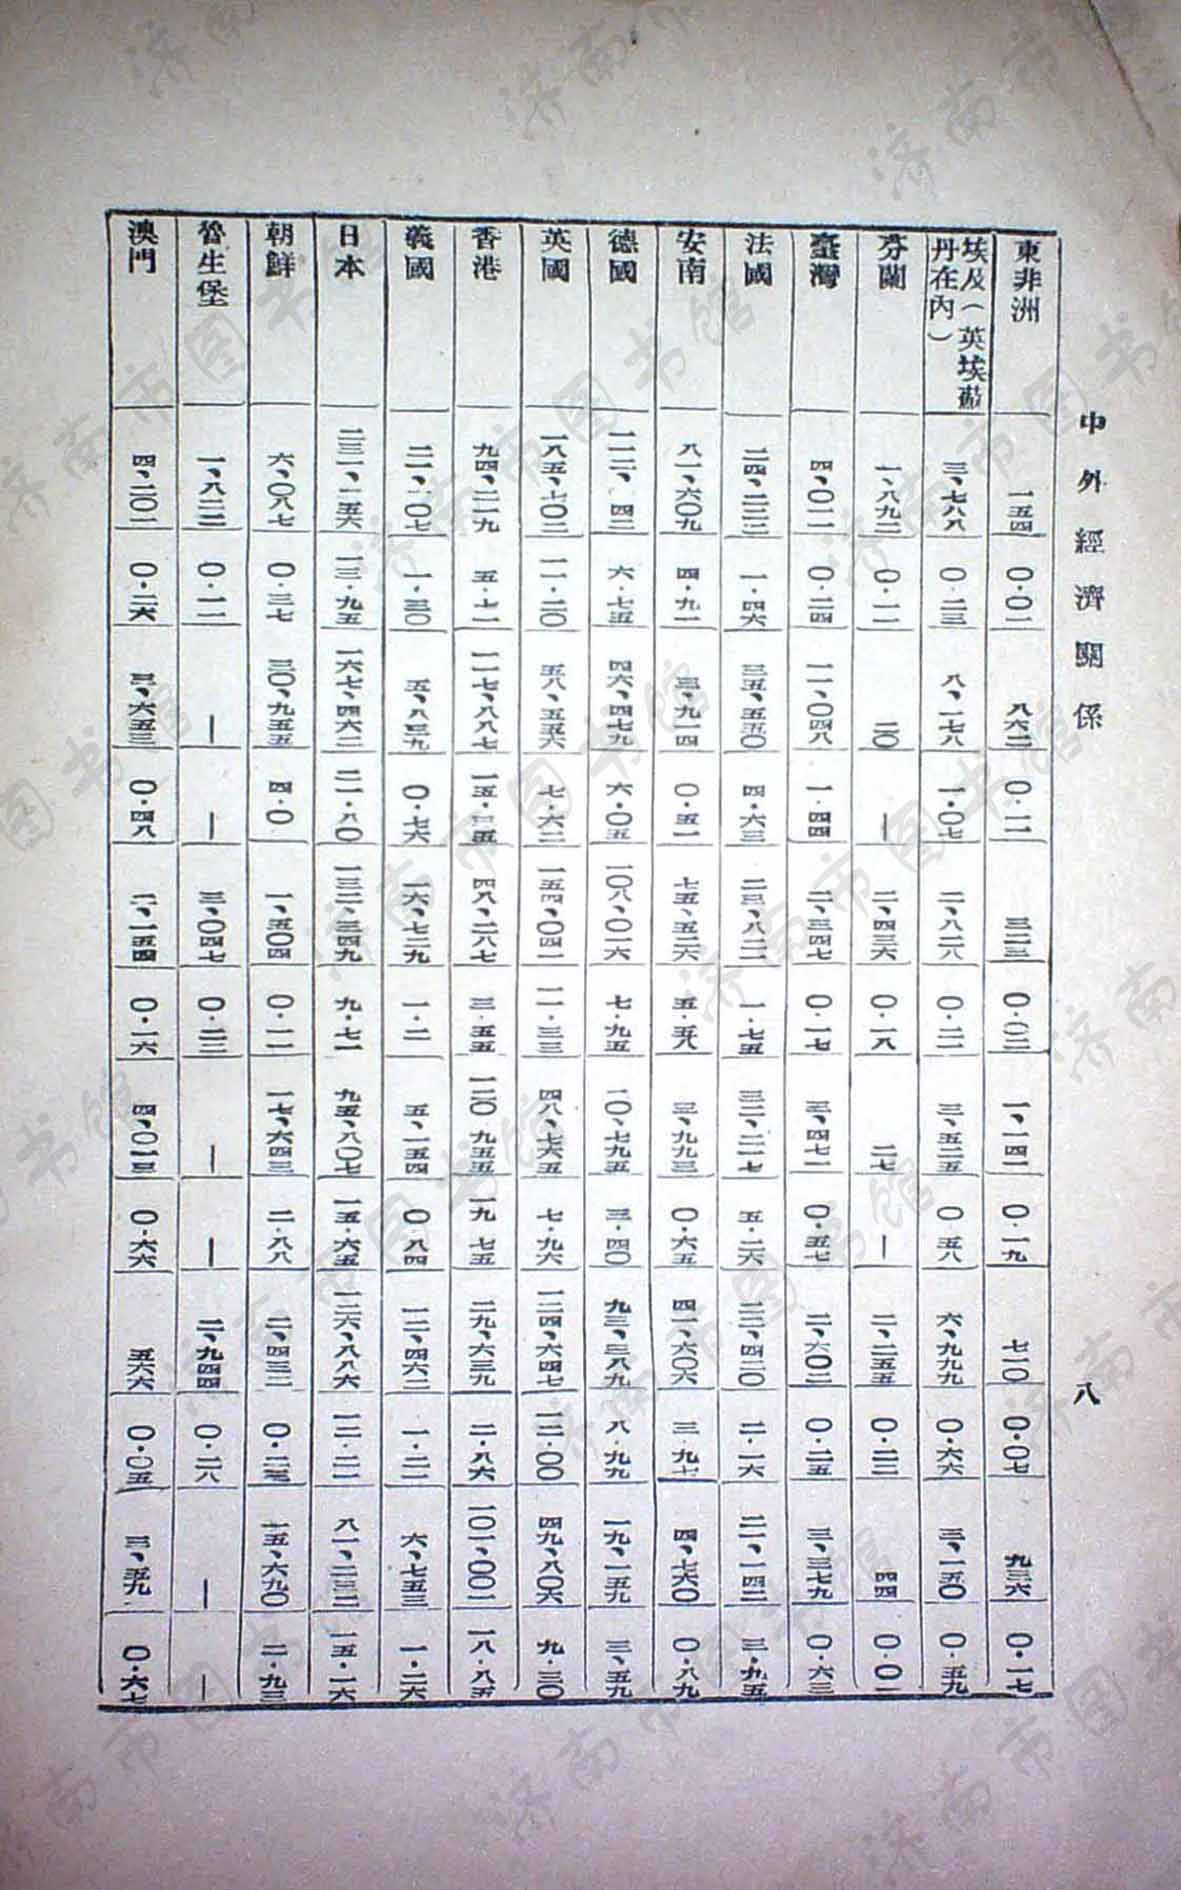 中外經濟關係 八
東非洲 一五四 〇・〇一 八六二 〇・一一 三二三 〇・〇二 一、一四二 〇・一九 七二〇 〇・〇七 九三六 〇・一七
埃及（英埃蘇丹在內） 三、七八八 〇・二三 八、一七八 一・〇七 二、八二八 〇・二一 三、五二五 〇・五八 六、九九九 〇・六六 三、一五〇 〇・五九
芬蘭 一、八九二 〇・一一 二〇 — 二、四三六 〇・一八 二七 — 二、二五五 〇・二二 四四 〇・〇一
臺灣 四、〇一一 〇・二四 一一、〇四八 一・四四 二、三四七 〇・一七 三、四七一 〇・五七 二、六〇二 〇・二五 三、三七九 〇・六三
法國 二四、二三二 一・四六 三五、五五〇 四・六三 二三、八二一 一・七五 三二、二一七 五・二六 二二、四二〇 二・一六 二一、一四二 三・九五
安南 八一、六〇九 四・九一 三、九一四 〇・五一 七五、五二六 五・五八 三、九九三 〇・六五 四一、六〇六 三・九七 四、七六〇 〇・八九
德國 一一二、一四二 六・七五 四六、四七九 六・〇五 一〇八、〇一六 七・九五 二〇、七九五 三・四〇 九三、三八九 八・九九 一九、一五九 三・五九
英國 一八五、七〇二 一一・二〇 五八、五五六 七・六二 一五四、〇四一 一一・三三 四八、七六五 七・九六 一二四、六四七 一二・〇〇 四九、八〇六 九・三〇
香港 九四、二一九 五・七一 一一七、八八七 一五・三五 四八、二八七 三・五五 一二〇、九五五 一九・七五 二九、六三九 二・八六 一〇一、〇〇一 一八・八五
義國 二一、一〇七 一・三〇 五、八三九 〇・七六 一六、七二九 一・二一 五、一五四 〇・八四 一二、四六二 一・二一 六、七五三 一・二六
日本 二三一、一五六 一三・九五 一六七、四六二 二一・八〇 一三二、三四九 九・七一 九五、八〇七 一五・六五 一二六、八八六 一二・二一 八一、二三二 一五・一六
朝鮮 六、〇八七 〇・三七 三〇、九五五 四・〇 一、五〇四 〇・一一 一七、六四三 二・八八 二、四三二 〇・二三 一五、六九〇 二・九三
魯生堡 一、八二二 〇・一一 — — 三、〇四七 〇・二三 — — 二、九四四 〇・二八 — —
澳門 四、二〇一 〇・二六 三、六五三 〇・四八 二、一五四 〇・一六 四、〇一三 〇・六六 五六六 〇・〇五 三、五九 〇・六七
济南市图书馆